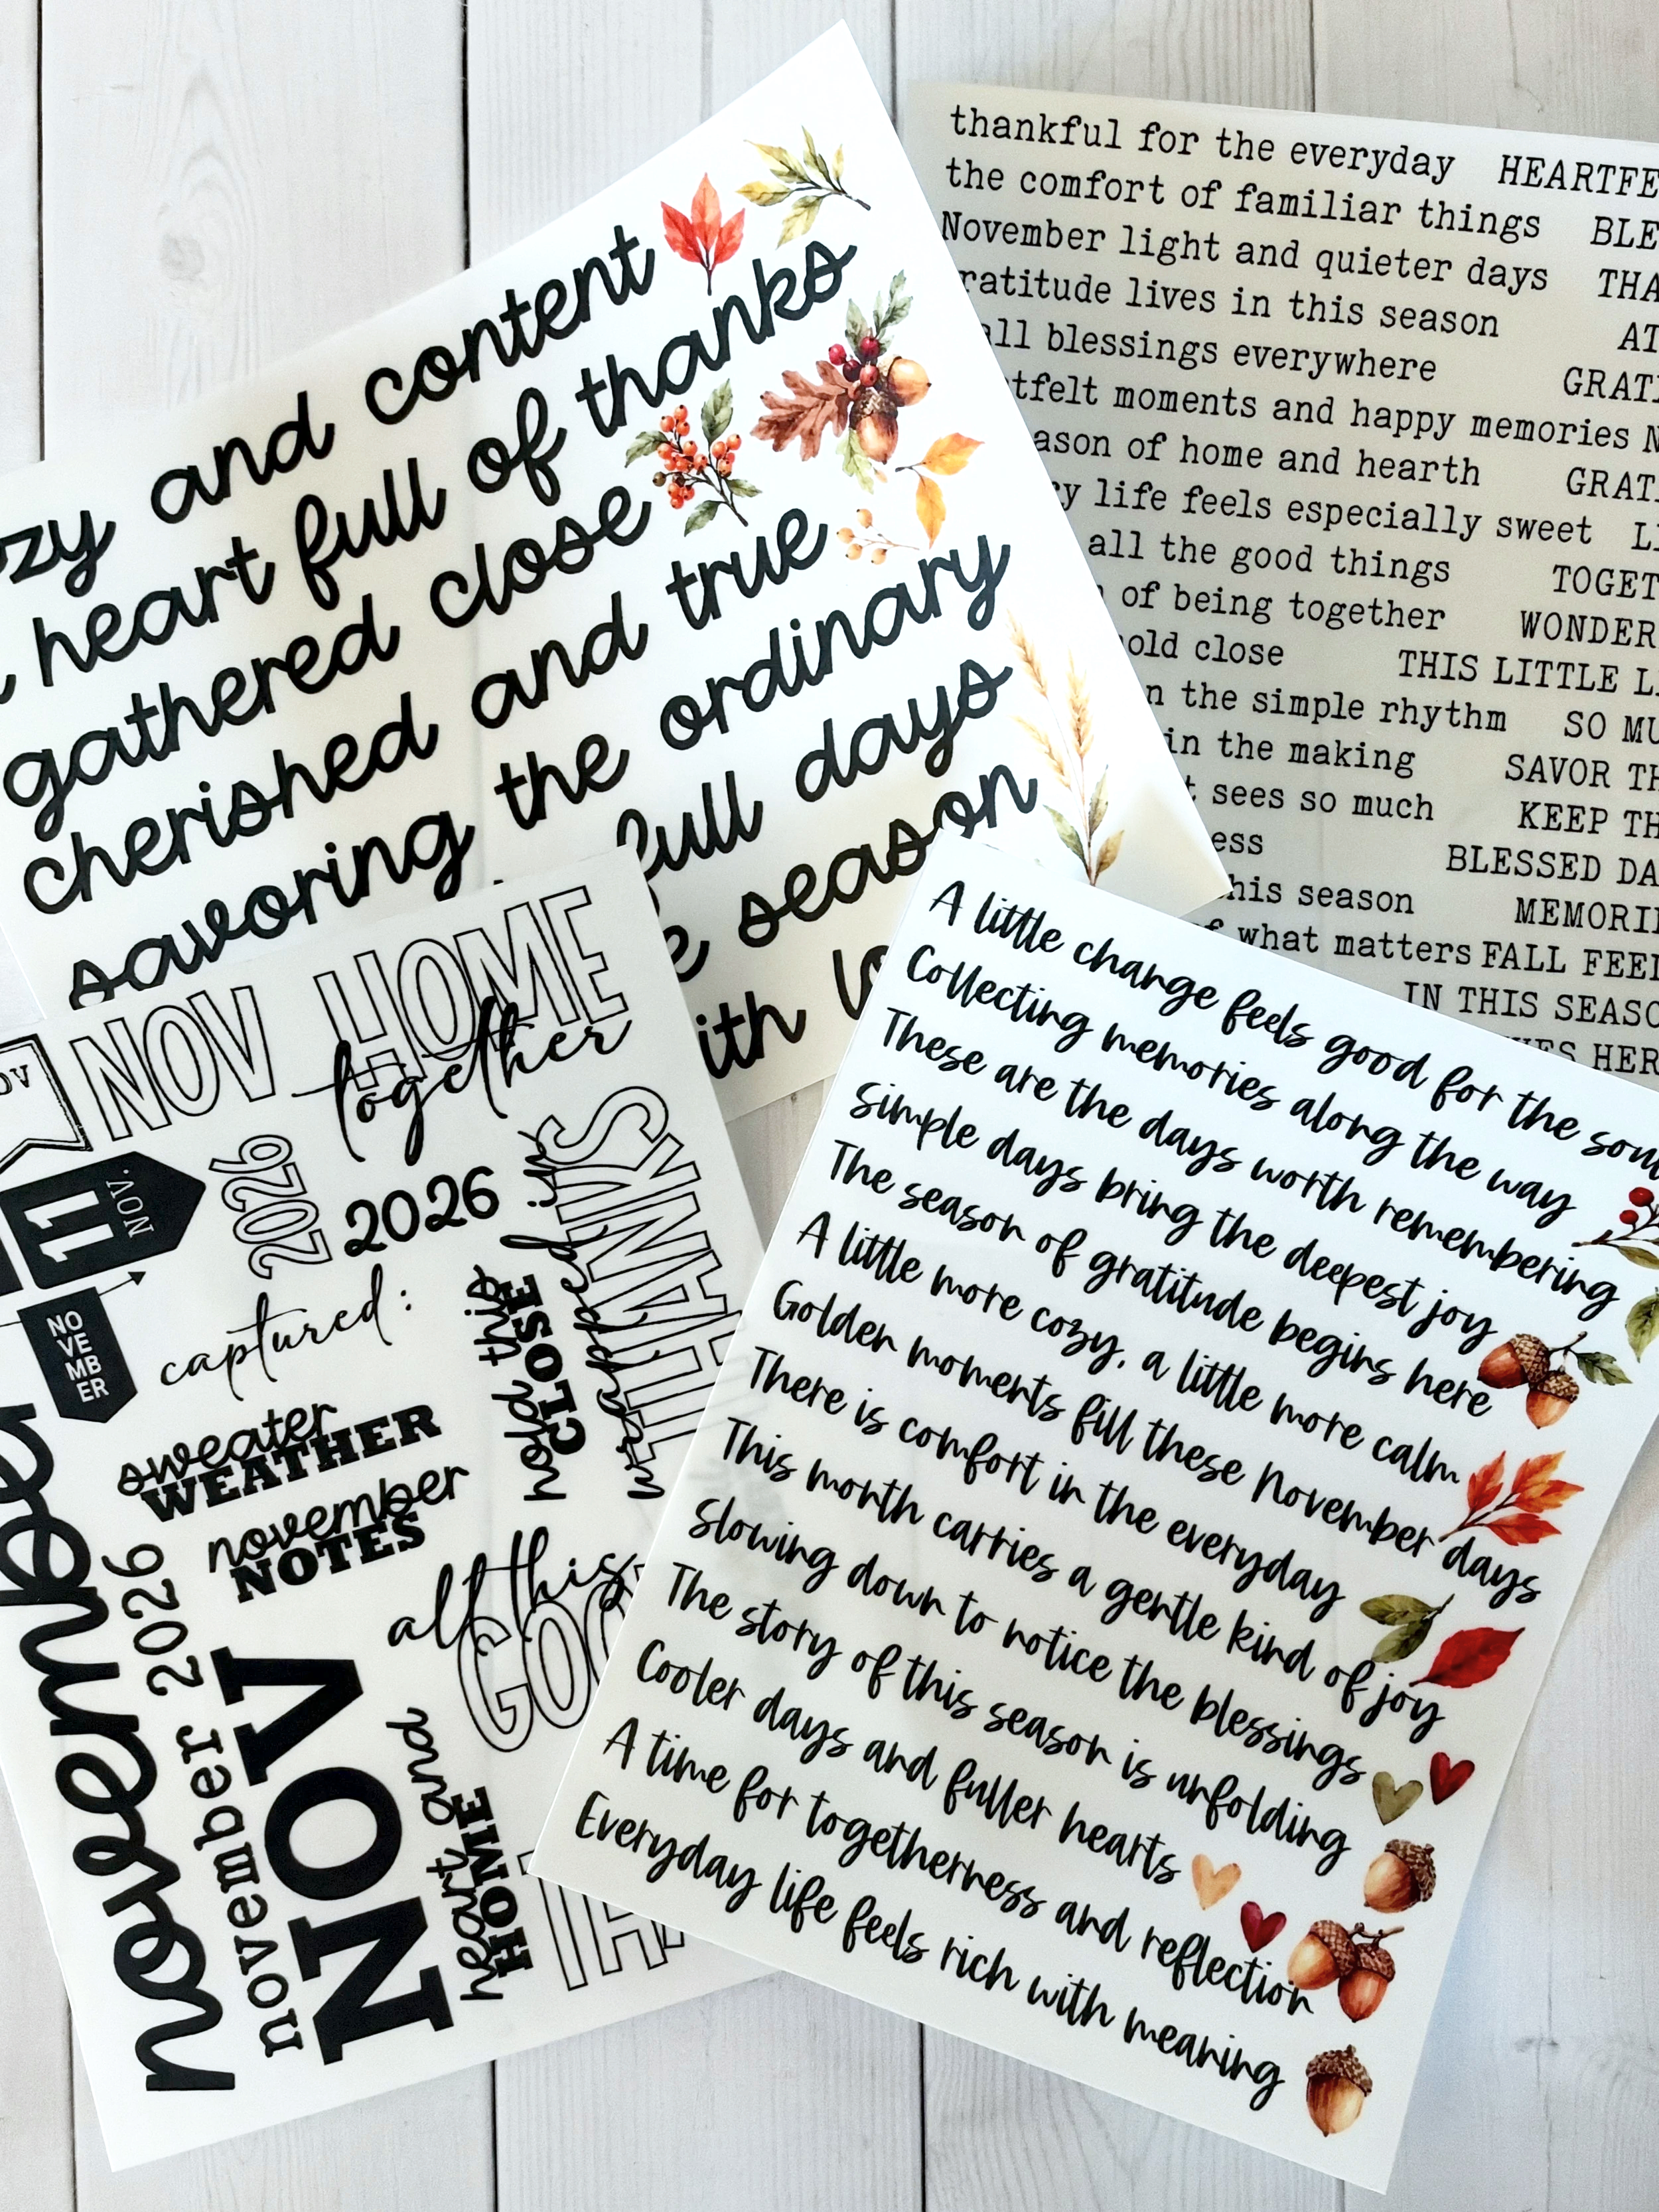 and content
heart full of thanks
gathered close
cherished and true
savoring the ordinary
full days
season
thankful for the everyday
the comfort of familiar things
November light and quieter days
lives in this season
blessings everywhere
moments and happy memories
of home and hearth
life feels especially sweet
all the good things
of being together
close
the simple rhythm
in the making
sees so much
season
what matters
THIS LITTLE
SO
SAVOR
KEEP
BLESSED
FALL
IN THIS
NOV HOME
together
NOV
11
NOV.
NO
VE
MB
ER
2026
2026
captured:
sweater
WEATHER
november
NOTES
hold this
CLOSE
wrapped in
THANKS
all this
november
november 2026
NOV
heart and
HOME
A little change feels good for the soul
Collecting memories along the way
These are the days worth remembering
Simple days bring the deepest joy
The season of gratitude begins here
A little more cozy, a little more calm
Golden moments fill these November days
There is comfort in the everyday
This month carries a gentle kind of joy
Slowing down to notice the blessings
The story of this season is unfolding
Cooler days and fuller hearts
A time for togetherness and reflection
Everyday life feels rich with meaning